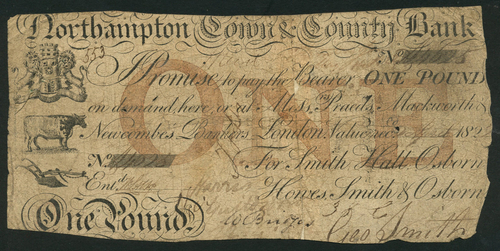 Northampton Town & County Bank
353
No
I Promise to pay the Bearer ONE POUND
on demand here, or at Messrs Praeds, Mackworth &
Newcombes, Bankers, London, Value recd 182
No For Smith Hall Osborn
Entd Howes, Smith & Osborn
One Pound. Geo Smith
ONE